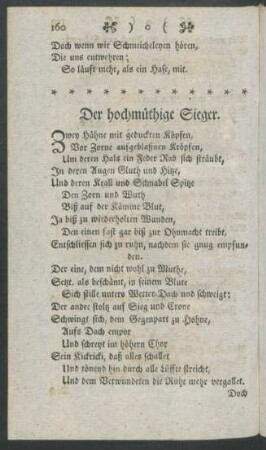 160 ❧ ) o ( ❧
Doch wenn wir Schmeicheleyen hören,
Die uns entwehren;
So läuft mehr, als ein Hase, mit.
* * * * * * * * * * * * * * * * *
Der hochmüthige Sieger.
Zwey Hähne mit geduckten Köpfen,
Vor Zorne aufgeblaßnen Kröpfen,
Um deren Hals ein Feder Rad sich sträubt,
In deren Augen Gluth und Hitze,
Und deren Krall und Schnabel Spitze
Den Zorn und Wuth
Biß auf der Kämme Blut,
Ja biß zu wiederholten Wunden,
Den einen fast gar biß zur Ohnmacht treibt.
Entschliessen sich zu ruhn, nachdem sie gnug empfun-
den.
Der eine, dem nicht wohl zu Muthe,
Setzt, als beschämt, in seinem Blute
Sich stille unters Wetter-Dach und schweigt;
Der andre stoltz auf Sieg und Crone
Schwingt sich, dem Gegenpart zu Hohne,
Aufs Dach empor
Und schreyt im höhern Chor
Sein Kickricki, daß alles schallet
Und tönend hin durch alle Lüffte streicht,
Und dem Verwundeten die Ruhe mehr vergallet.
Doch